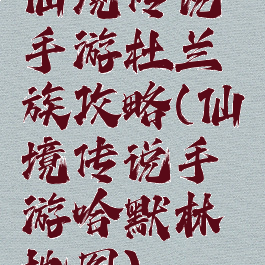 仙境传说
手游杜兰
族攻略(仙
境传说手
游哈默林
地图)